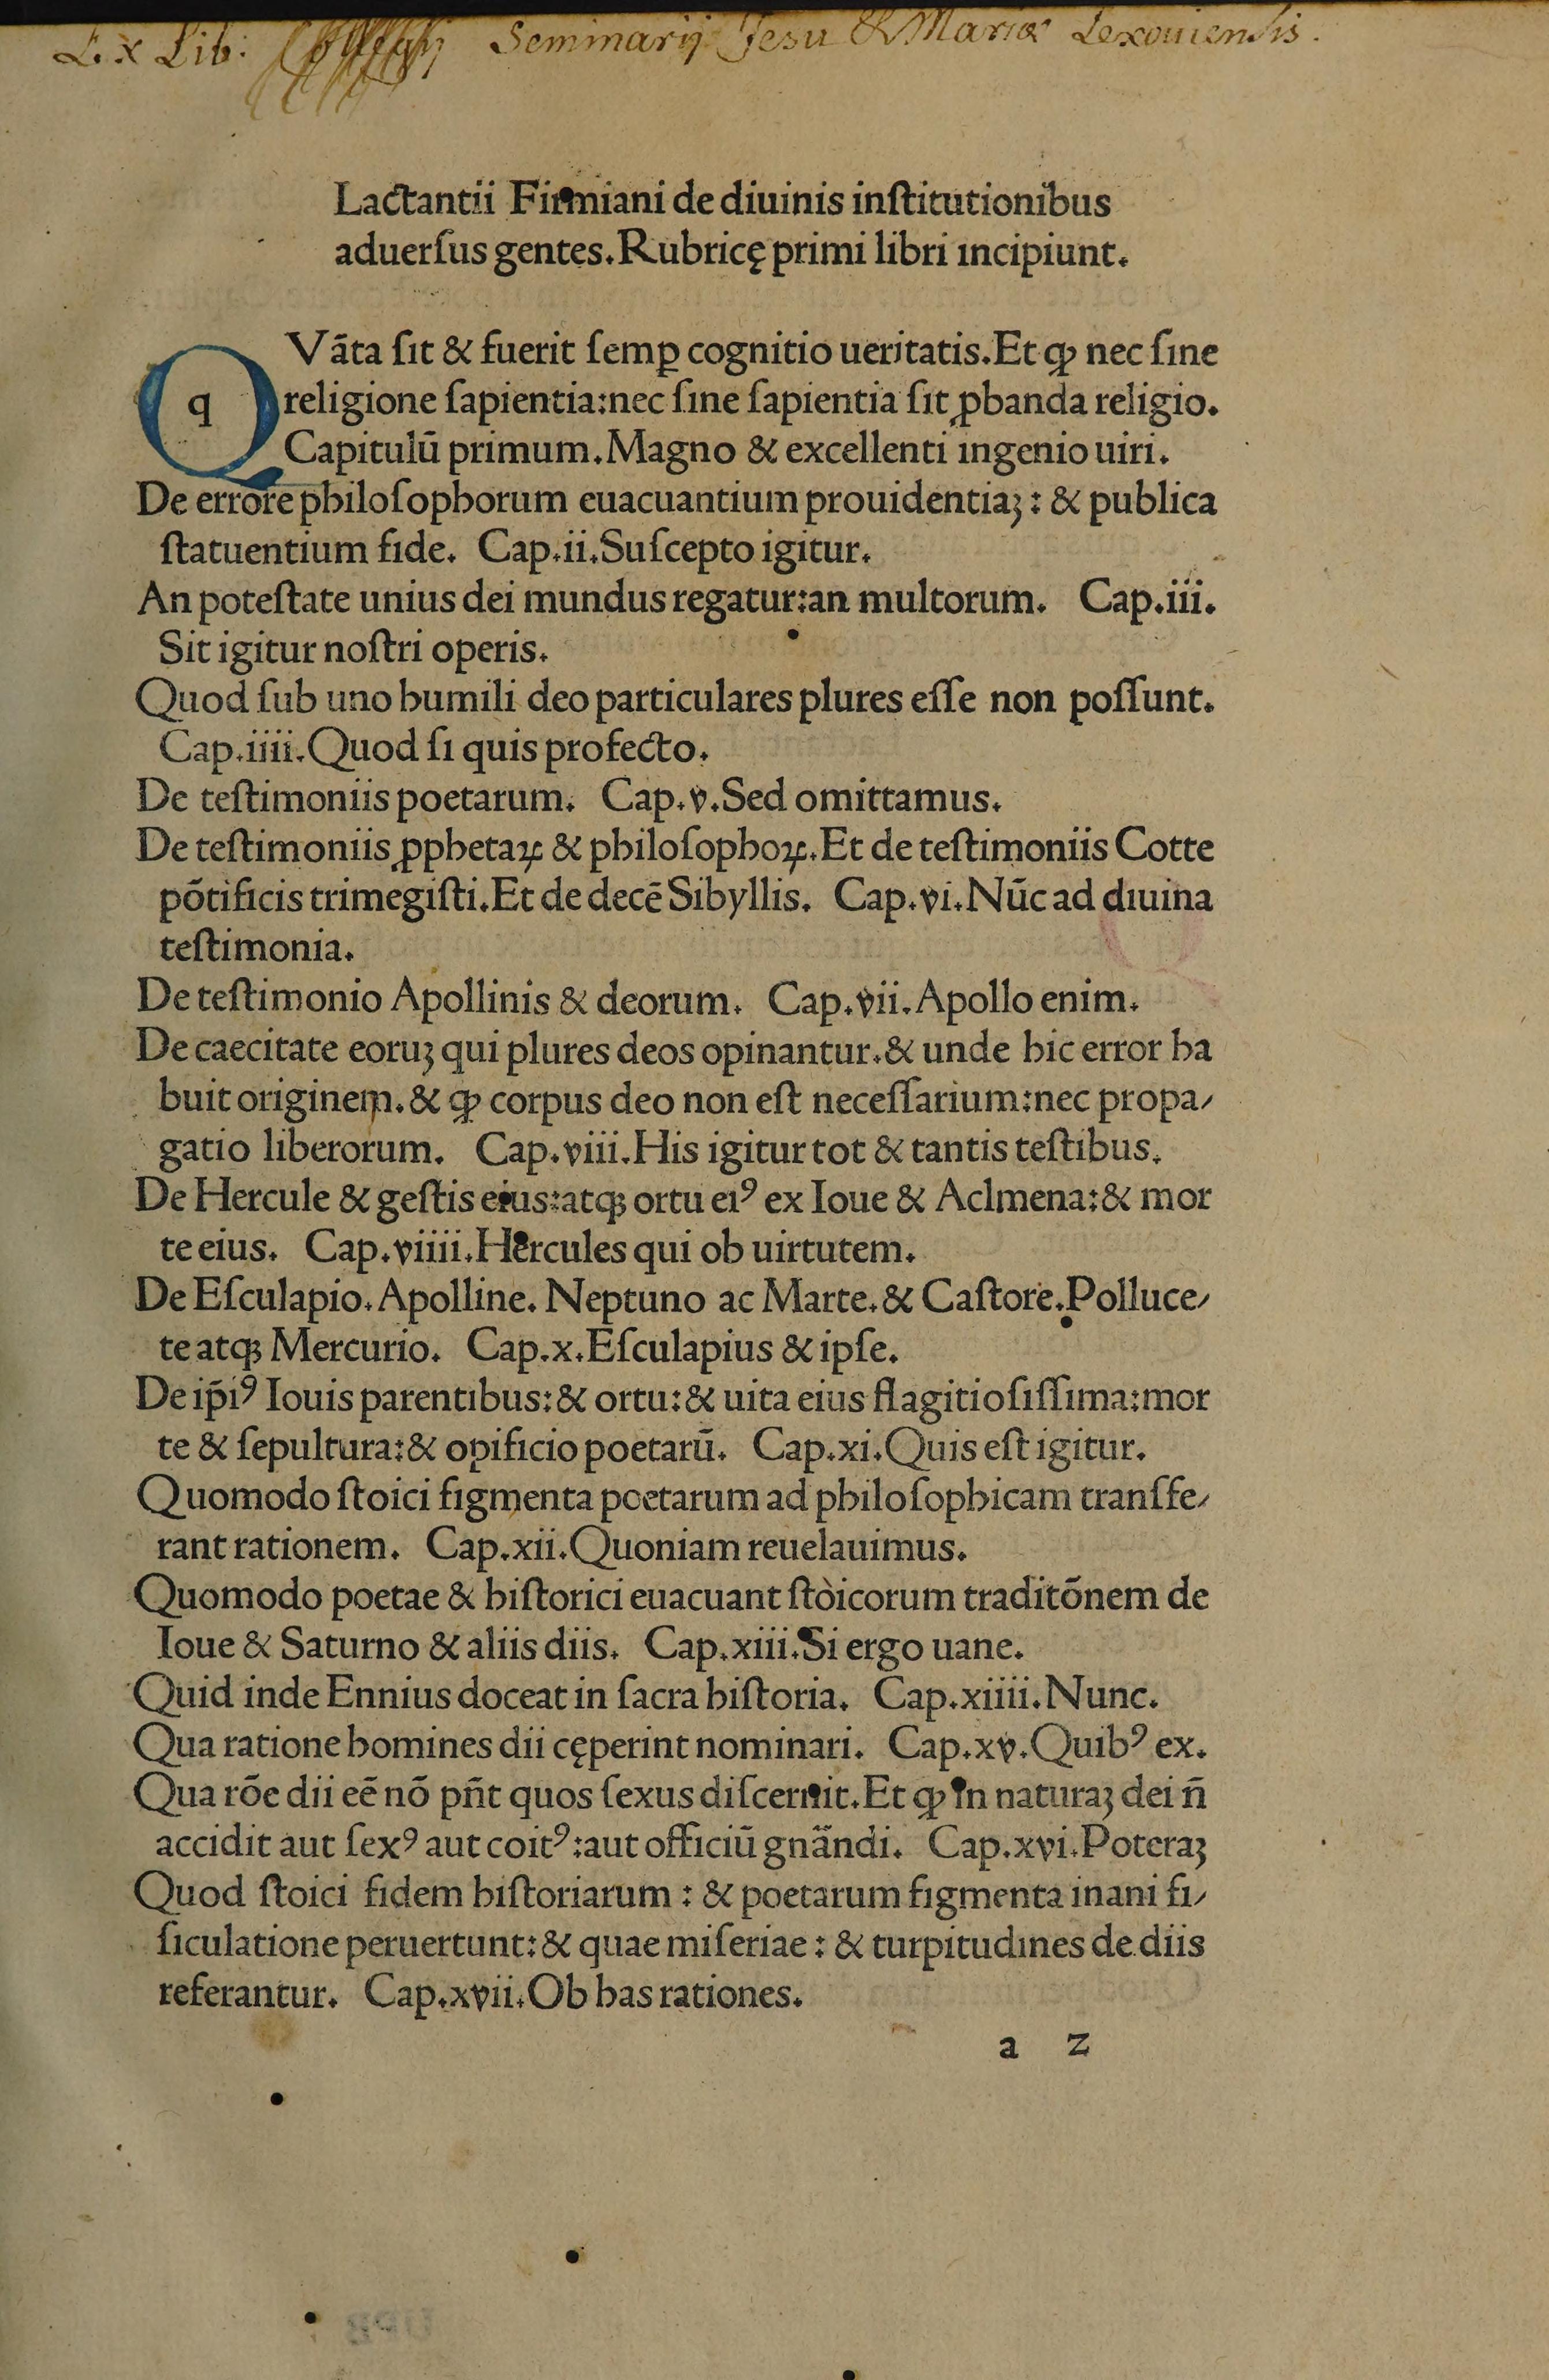 Ex Lib: Seminarij Jesu & Mariæ Lexouiensis.
Lactantii Firmiani de diuinis inſtitutionibus
aduerſus gentes. Rubricę primi libri incipiunt.
QVāta ſit & fuerit ſemꝑ cognitio ueritatis. Et ꝙ nec ſine
q religione ſapientia: nec ſine ſapientia ſit ꝓbanda religio.
Capitulū primum. Magno & excellenti ingenio uiri.
De errore philoſophorum euacuantium prouidentiaꝫ: & publica
ſtatuentium fide. Cap. ii. Suſcepto igitur.
An poteſtate unius dei mundus regatur: an multorum. Cap. iii.
Sit igitur noſtri operis.
Quod ſub uno humili deo particulares plures eſſe non poſſunt.
Cap. iiii. Quod ſi quis profecto.
De teſtimoniis poetarum. Cap. v. Sed omittamus.
De teſtimoniis ꝓphetaꝝ & philoſophoꝝ. Et de teſtimoniis Cotte
pōtificis trimegiſti. Et de decē Sibyllis. Cap. vi. Nūc ad diuina
teſtimonia.
De teſtimonio Apollinis & deorum. Cap. vii. Apollo enim.
De caecitate eoruꝫ qui plures deos opinantur. & unde hic error ha
buit originem. & ꝙ corpus deo non eſt neceſſarium: nec propa⸗
gatio liberorum. Cap. viii. His igitur tot & tantis teſtibus.
De Hercule & geſtis eius: atqꝫ ortu eiꝰ ex Ioue & Aclmena: & mor
te eius. Cap. viiii. Hercules qui ob uirtutem.
De Eſculapio. Apolline. Neptuno ac Marte. & Caſtore. Polluce⸗
te atqꝫ Mercurio. Cap. x. Eſculapius & ipſe.
De ip̄iꝰ Iouis parentibus: & ortu: & uita eius flagitioſiſſima: mor
te & ſepultura: & opificio poetarū. Cap. xi. Quis eſt igitur.
Quomodo ſtoici figmenta poetarum ad philoſophicam tranſfe⸗
rant rationem. Cap. xii. Quoniam reuelauimus.
Quomodo poetae & hiſtorici euacuant ſtoicorum traditōnem de
Ioue & Saturno & aliis diis. Cap. xiii. Si ergo uane.
Quid inde Ennius doceat in ſacra hiſtoria. Cap. xiiii. Nunc.
Qua ratione homines dii cęperint nominari. Cap. xv. Quibꝰ ex.
Qua rōe dii eē nō pn̄t quos ſexus diſcernit. Et ꝙ in naturaꝫ dei n̄
accidit aut ſexꝰ aut coitꝰ: aut officiū gnāndi. Cap. xvi. Poteraꝫ
Quod ſtoici fidem hiſtoriarum: & poetarum figmenta inani fi⸗
ſiculatione peruertunt: & quae miſeriae: & turpitudines de diis
referantur. Cap. xvii. Ob has rationes.
a 2